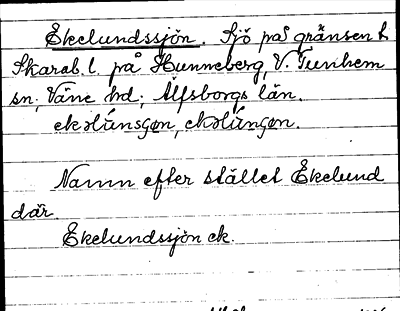 Ekelundssjön. Sjö på gränsen t.
Skarab. l. på Hunneberg, V. Tunhem
sn; Väne hd; Älfsborgs län.
ekəlúnsgøn, ekəlúngøn.
Namn efter stället Ekelund
där.
Ekelundssjön ek.